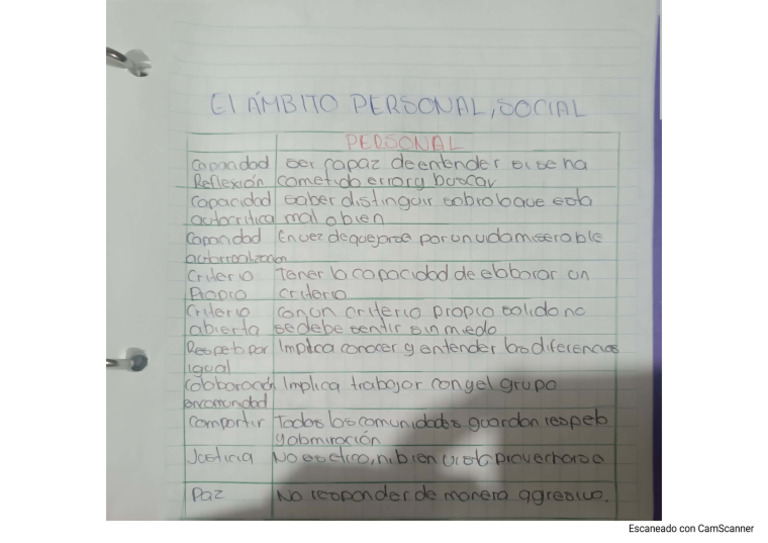 El ÁMBITO PERSONAL, SOCIAL
PERSONAL
Capacidad ser capaz de entender si se ha
Reflexión cometido error y buscar
Capacidad saber distinguir sobre lo que esta
autocritica mal o bien
Capacidad En vez de quejarse por un vida miserable
autorrealización
Criterio Tener la capacidad de elaborar un
Propio criterio
Criterio con un criterio propio solido no
abierta se debe sentir sin miedo
Respeto por Implica conocer y entender las diferencias
igual
Colaboración Implica trabajar con y el grupo
en comunidad
Compartir Todas las comunidades guardan respeto
y abmiración
Justicia No es etico, ni bien visto provecharse
Paz No responder de manera agresiva.
Escaneado con CamScanner